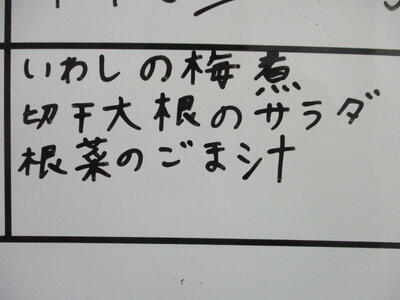 いわしの梅煮
切干大根のサラダ
根菜のごま汁